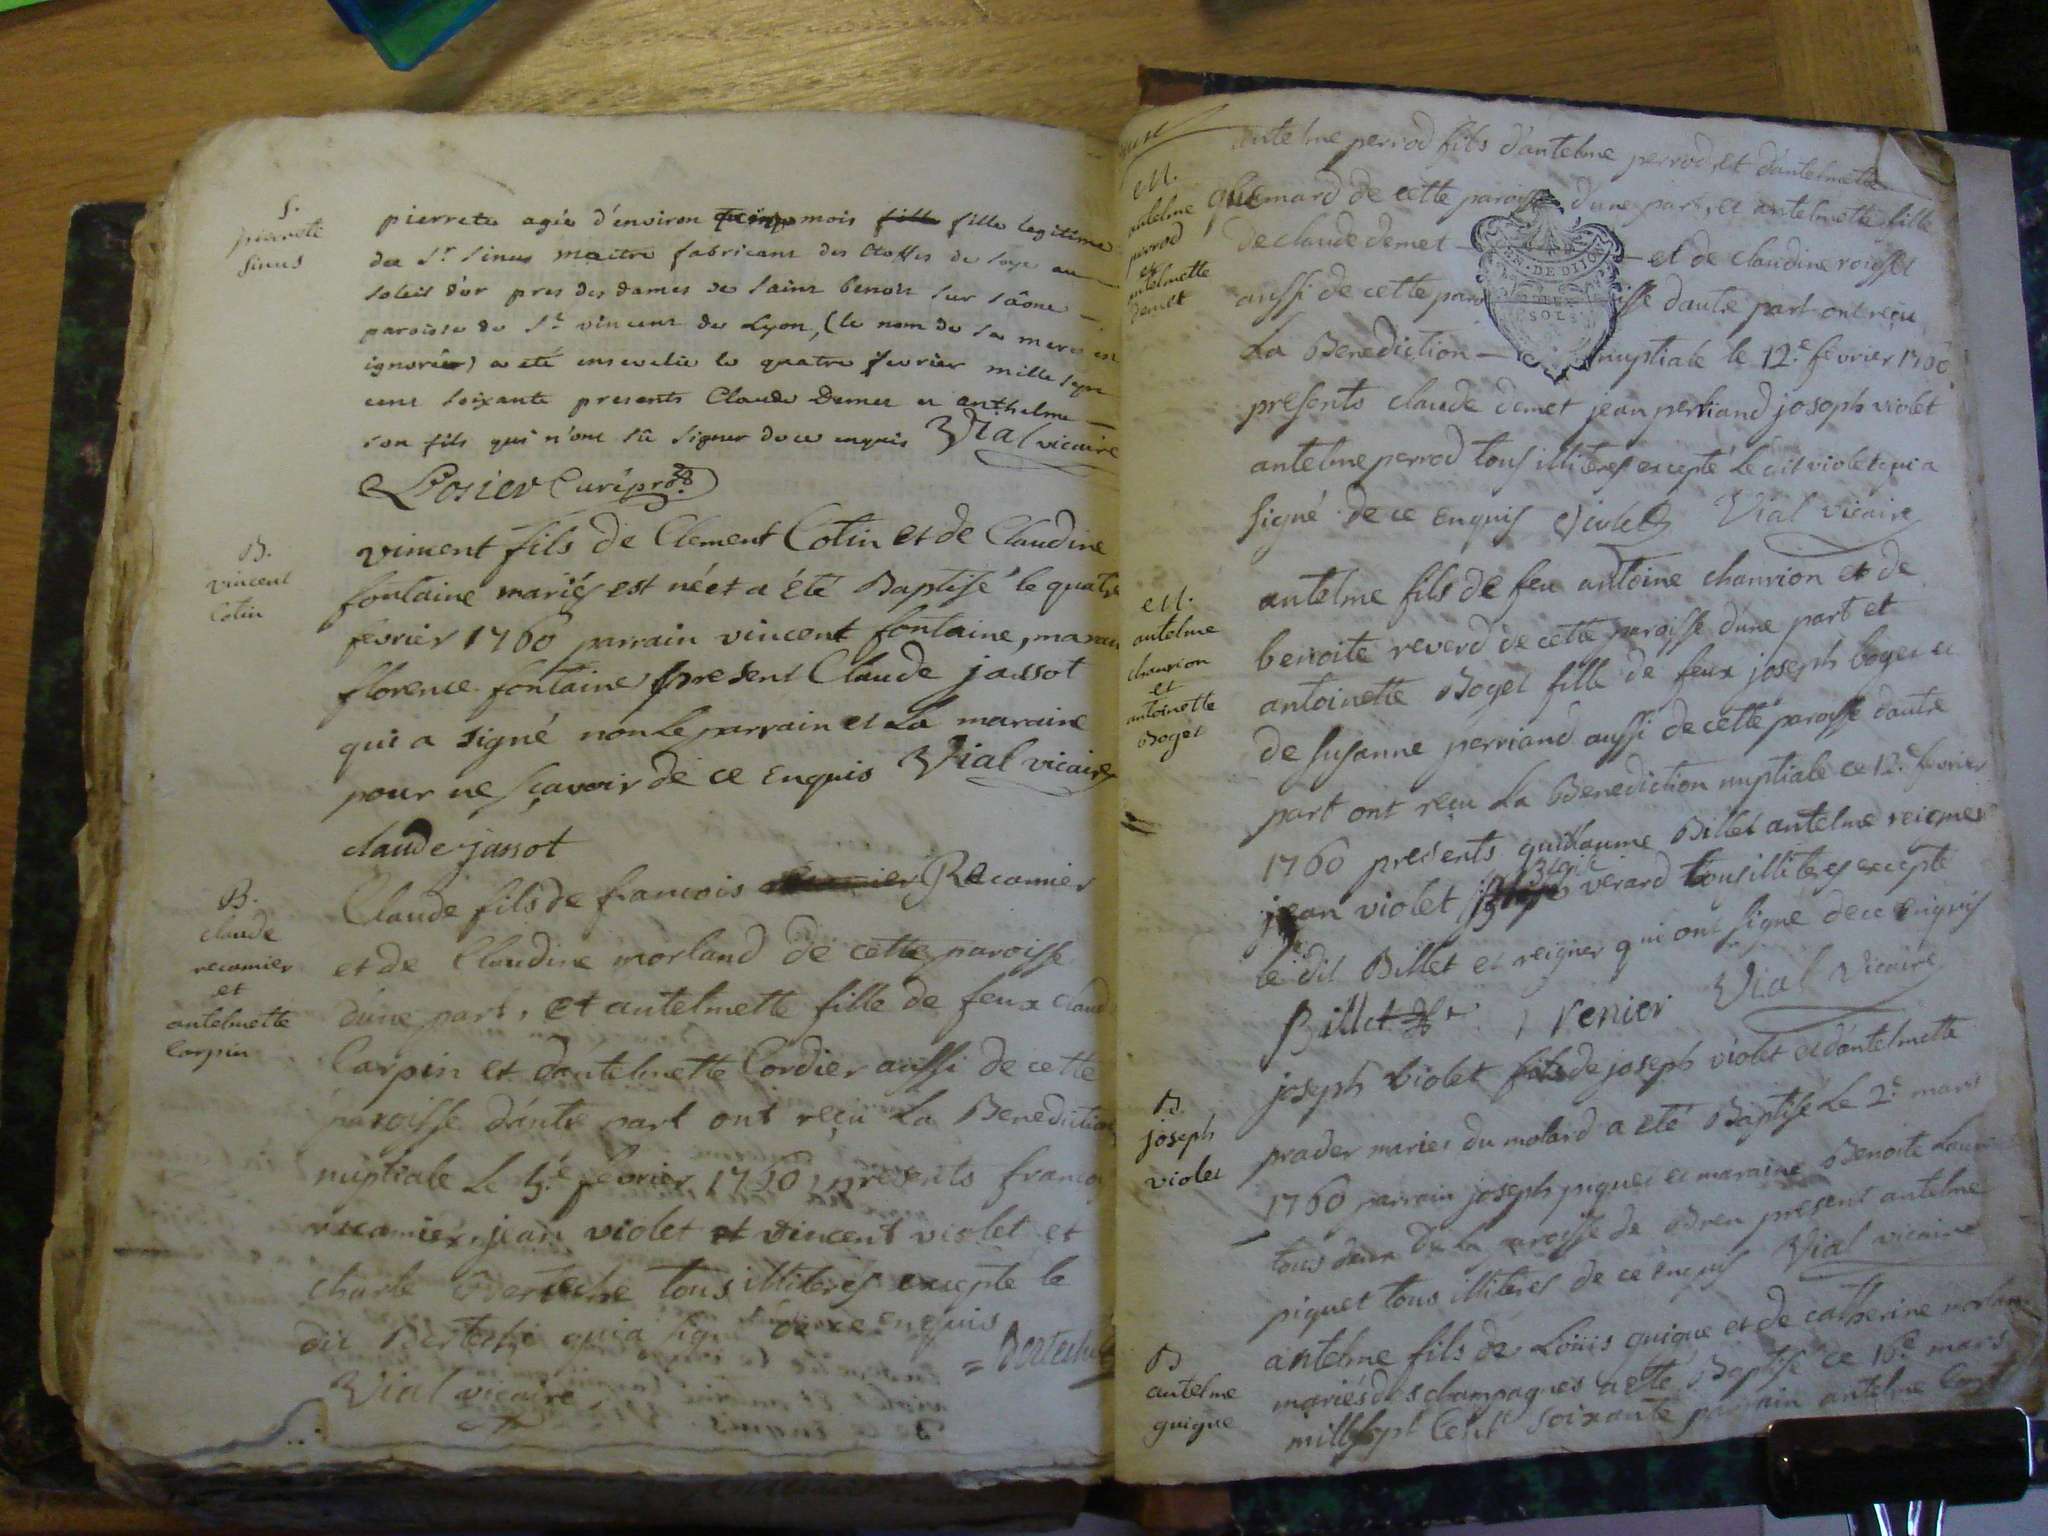 S.
pierrete
sinus
pierrete agée d'environ mois fille fille legitime
du Sr. sinus maitre fabricant des Etoffes de soye au
soleil d'or pres des dames de saint benoit sur saône
paroisse de St. vincent de Lyon, (le nom de la mere est
ignorée) a eté ensevelie le quatre fevrier mille sept
cent soixante presents Claude Demet et anthelme
son fils qui n'ont sû signer de ce enquis Vial vicaire
B.
vincent
Cotin
vincent fils de Clement Cotin et de Claudine
fontaine mariés est né et a été Baptisé le quatre
fevrier 1760 parrain vincent fontaine, maraine
florence fontaine present Claude jassot
qui a signé non le parrain et la maraine
pour ne sçavoir de ce enquis Vial vicaire
claude jassot
B.
claude
recamier
et
antelmette
Carpin
Claude fils de francois Recamier
et de Claudine morland de cette paroisse
d'une part, et antelmette fille de feux claude
Carpin et d'antelmette Cordier aussi de cette
paroisse d'autre part ont reçu la Benediction
nuptiale le 5.e fevrier 1760, presents francois
recamier, jean violet et vincent violet et
charle Berteche tous illiteres excepte le
dit Berteche qui a signé de ce enquis
Vial vicaire
M.
antelme
perrod
et
antelmette
demet
antelme perrod fils d'antelme perrod, et d'antelmette
de cette paroisse d'une part, et antelmette fille
de claude demet et de claudine
GEN. DE DIJON
SOLS
aussi de cette paroisse d'autre part ont reçu
La Benediction nuptiale le 12.e fevrier 1760
presents claude demet jean perriand joseph violet
antelme perrod tous illiteres excepté le dit violet qui a
signé de ce enquis violet Vial vicaire
M.
antelme
chanrion
et
antoinette
Boget
antelme fils de feu antoine chanrion et de
benoite reverd de cette paroisse d'une part et
antoinette Boget fille de feux joseph boget et
de susanne perriand aussi de cette paroisse d'autre
part ont reçu la Benediction nuptiale ce 12.e fevrier
1760 presents guillaume Billet antelme
jean violet verard tous illiteres excepté
le dit Billet et reigner qui ont signé de ce enquis
Billet renier Vial Vicaire
B.
joseph
violet
joseph violet fils de joseph violet et d'antelmette
prader mariés du molard a eté Baptisé le 2.e mars
1760 parrain joseph piquet et maraine Benoite
tous deux de la paroisse de Bren present antelme
piquet tous illiteres de ce enquis Vial vicaire
B
antelme
guigue
antelme fils de Louis guigue et de catherine morland
mariés des champagnes a eté Baptisé ce 16.e mars
mille sept Cent soixante parrain antelme